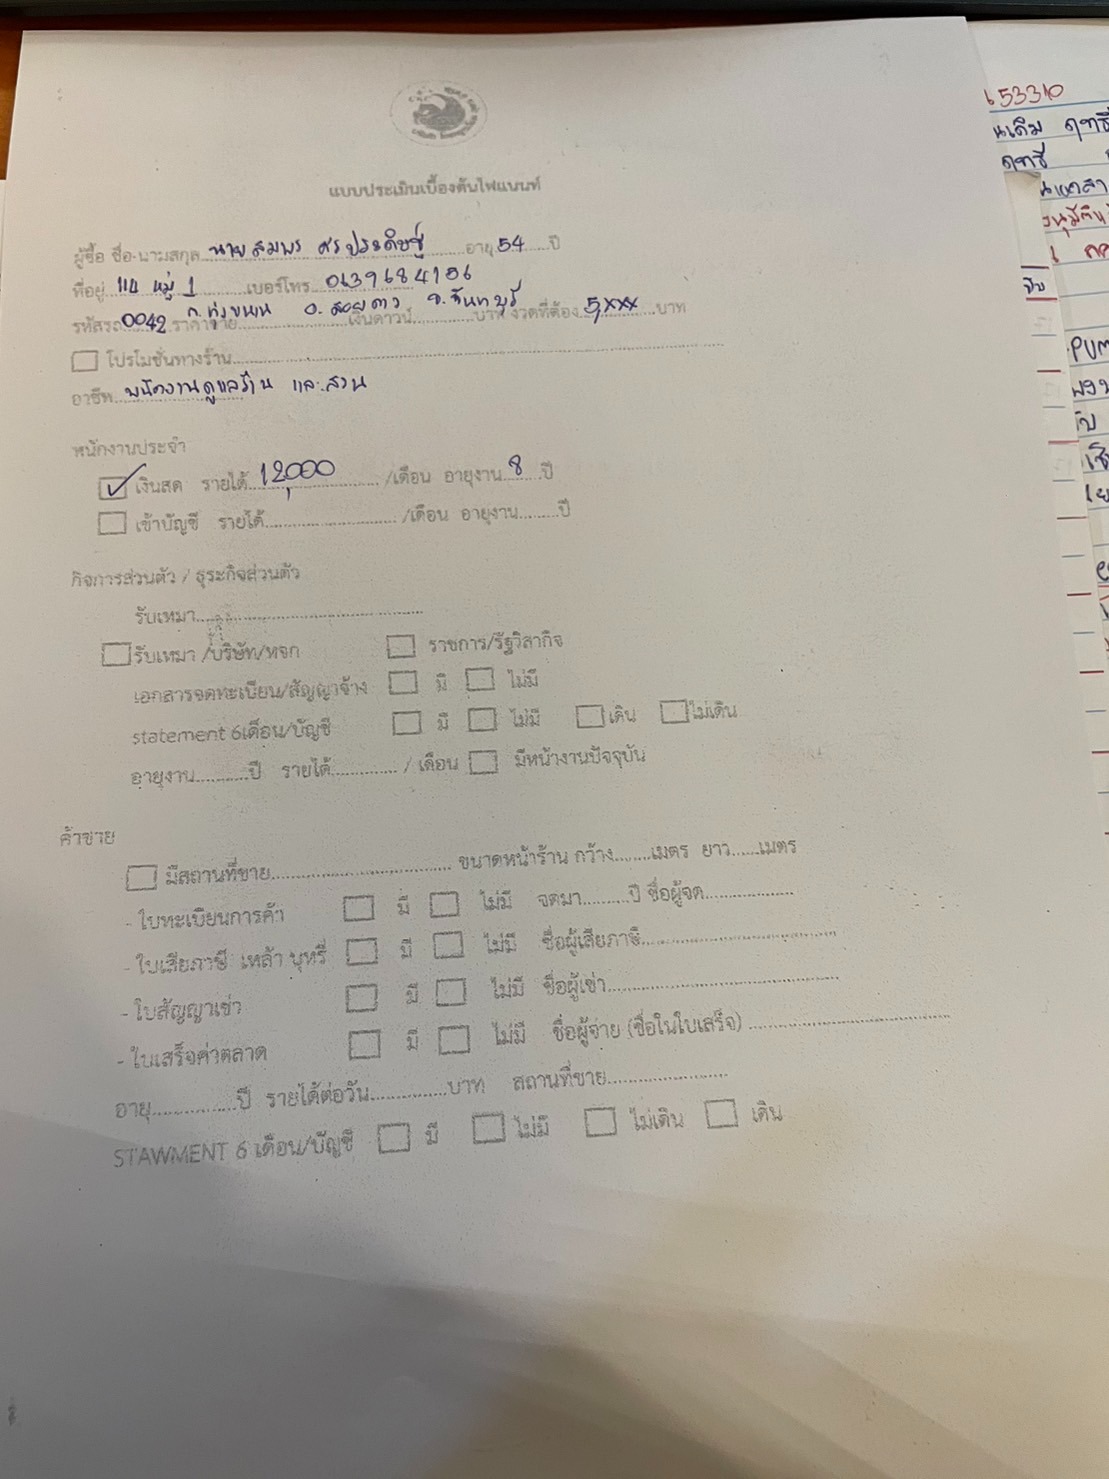 แบบประเมินเบื้องต้นไฟแนนท์
ผู้ซื้อ ชื่อ-นามสกุล นาย สมพร ศรประดิษฐ์ อายุ 54 ปี
ที่อยู่ 114 หมู่ 1 เบอร์โทร 0639684156
ต.ทุ่งขนาน อ.สอยดาว จ.จันทบุรี
รหัสรถ 0042 ราคาขาย เงินดาวน์ บาท งวดที่ต้อง 5,xxx บาท
โปรโมชั่นทางร้าน
อาชีพ พนักงานดูแลร้าน และ สวน
พนักงานประจำ
เงินสด รายได้ 12,000 /เดือน อายุงาน 8 ปี
เข้าบัญชี รายได้ /เดือน อายุงาน ปี
กิจการส่วนตัว / ธุระกิจส่วนตัว
รับเหมา
รับเหมา /บริษัท/หจก ราชการ/รัฐวิสากิจ
เอกสารจดทะเบียน/สัญญาจ้าง มี ไม่มี
statement 6เดือน/บัญชี มี ไม่มี เดิน ไม่เดิน
อายุงาน ปี รายได้ / เดือน มีหน้างานปัจจุบัน
ค้าขาย
มีสถานที่ขาย ขนาดหน้าร้าน กว้าง เมตร ยาว เมตร
- ใบทะเบียนการค้า มี ไม่มี จดมา ปี ชื่อผู้จด
- ใบเสียภาษี เหล้า บุหรี่ มี ไม่มี ชื่อผู้เสียภาษี
- ใบสัญญาเช่า มี ไม่มี ชื่อผู้เช่า
- ใบเสร็จค่าตลาด มี ไม่มี ชื่อผู้จ่าย (ชื่อในใบเสร็จ)
อายุ ปี รายได้ต่อวัน บาท สถานที่ขาย
STAWMENT 6 เดือน/บัญชี มี ไม่มี ไม่เดิน เดิน
53310
ฤทธิ์